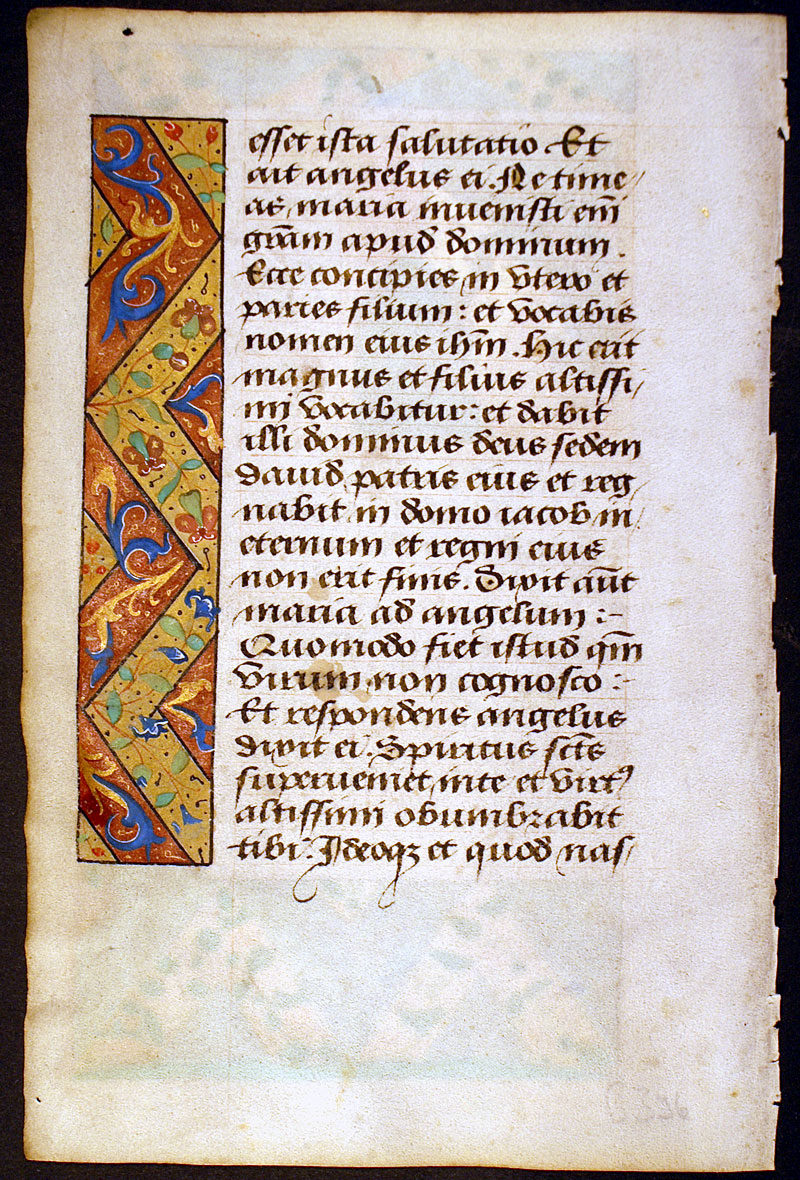 esset ista salutatio Et
ait angelus ei. Ne time/
as maria inuenisti em̄
gr̄am apud̄ dominum.
Ecce concipies in vtero et
paries filium: et vocabis
nomen eius ihm̄. Hic erit
magnus et filius altissi/
mi vocabitur: et dabit
illi dominus deus sedem
dauid patris eius et reg-
nabit in domo iacob in
eternum et regni eius
non erit finis. Dixit aūt
maria ad angelum:-
Quomodo fiet istud qm̄
virum non cognosco:-
Et respondens angelus
dixit ei. Spiritus sc̄ts
superueniet inte et virt⁹
altissimi obumbrabit
tibi. Ideoqꝫ et quod nas/